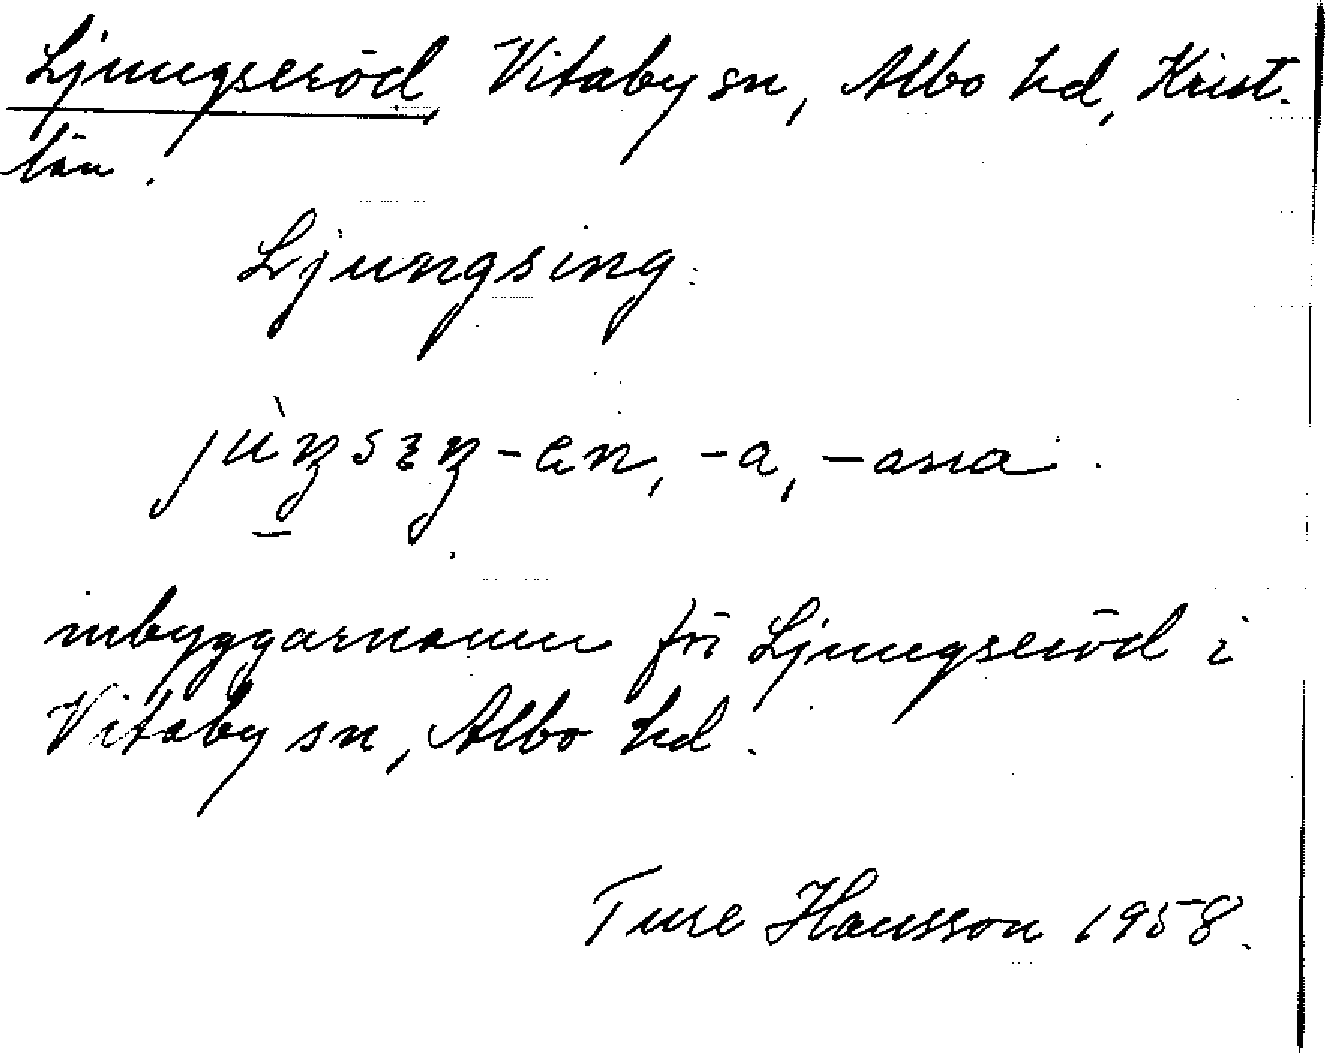 Ljungseröd, Vitaby sn, Albo hd, Krist.
län.
Ljungsing.
jùŋsıŋ -en, -a, -ana.
inbyggarnamn för Ljungseröd i
Vitaby sn, Albo hd.
Ture Hansson 1958.